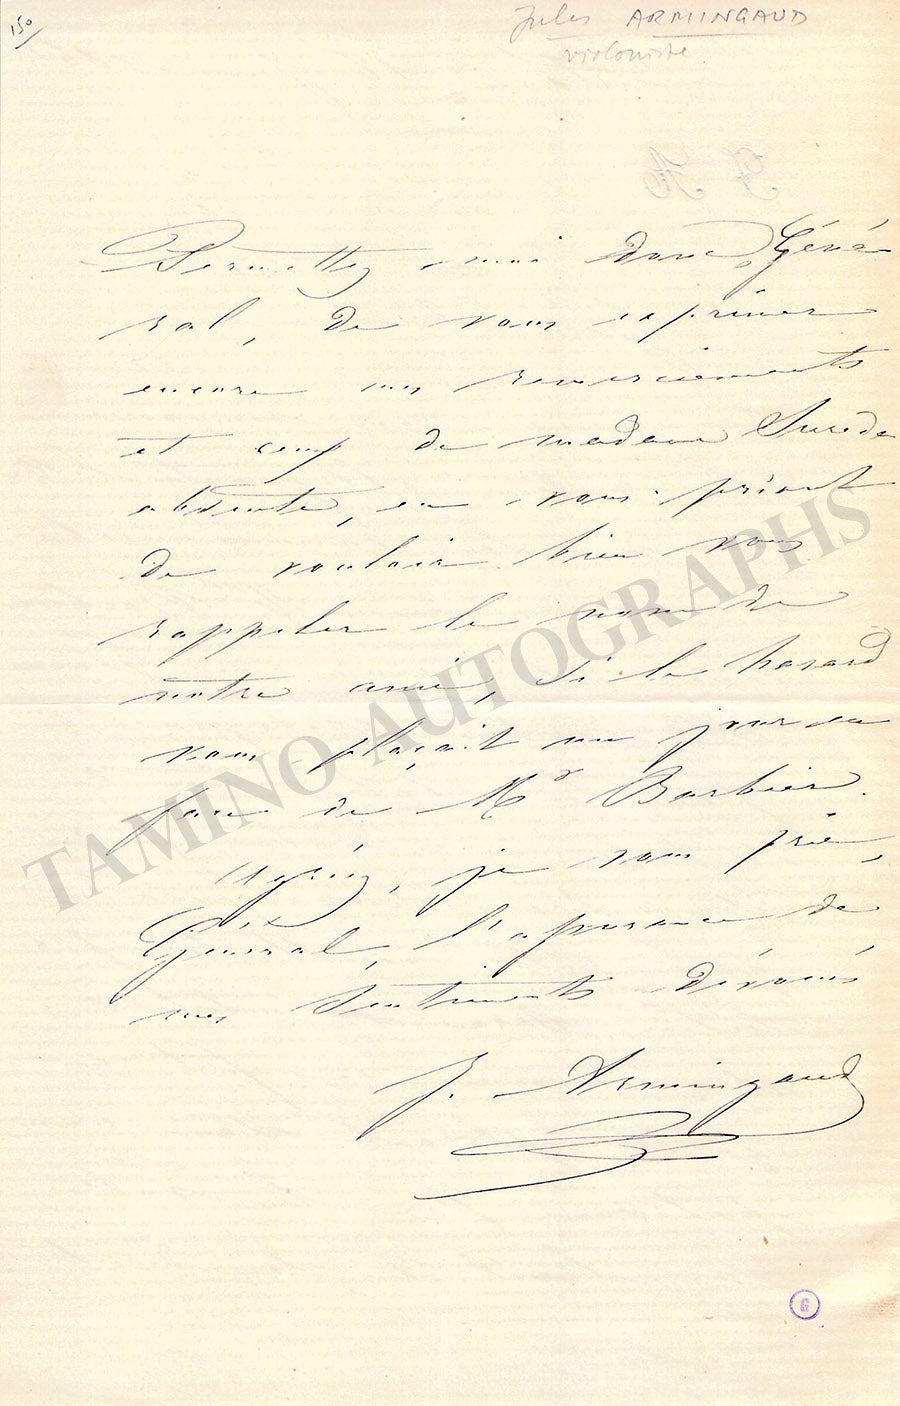 150
Jules ARMINGAUD
violoniste
Permettez moi donc, Géné-
ral, de vous exprimer
encore mes remerciements
et ceux de madame Sureda
absente, en vous priant
de vouloir bien vous
rappeler le nom de
notre ami, si le hasard
vous plaçait un jour en
face de Mr Barbier.
Agréez, je vous prie,
Général, l'assurance de
mes sentiments dévoués
J. Armingaud
TAMINO AUTOGRAPHS
G